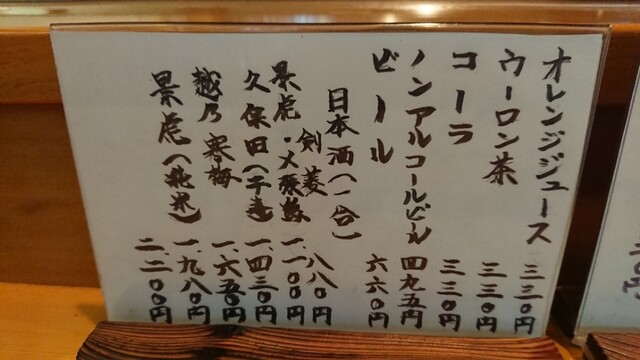 オレンジジュース 三三〇円
ウーロン茶 三三〇円
コーラ 三三〇円
ノンアルコールビール 四九五円
ビール 六六〇円
日本酒(一合)
剣菱 八八〇円
景虎・〆張鶴 一、一〇〇円
久保田(千寿) 一、四三〇円
越乃寒梅 一、六五〇円
景虎(純米) 一、九八〇円
二、二〇〇円